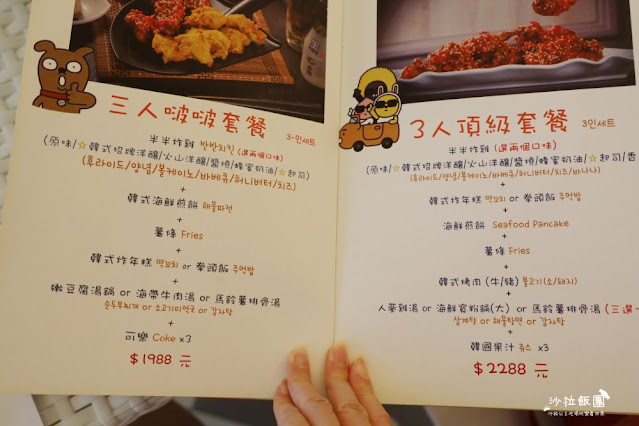 三人啵啵套餐 3-인세트
半半炸雞 반반치킨 (選兩個口味)
(原味/☆韓式招牌洋釀/火山洋釀/醬燒/蜂蜜奶油/☆起司)
(후라이드/양념/볼케이노/바베큐/허니버터/치즈)
+
韓式海鮮煎餅 해물파전
+
薯條 Fries
+
韓式炸年糕 떡꼬치 or 拳頭飯 주먹밥
+
嫩豆腐湯鍋 or 海帶牛肉湯 or 馬鈴薯排骨湯
순두부찌개 or 소고기미역국 or 감자탕
+
可樂 Coke x3
$1988 元
3人頂級套餐 3인세트
半半炸雞 (選兩個口味)
(原味/☆韓式招牌洋釀/火山洋釀/醬燒/蜂蜜奶油/☆起司/香
(후라이드/양념/볼케이노/바베큐/허니버터/치즈/바나나)
+
韓式炸年糕 떡꼬치 or 拳頭飯 주먹밥
+
海鮮煎餅 Seafood Pancake
+
薯條 Fries
+
韓式烤肉 (牛/豬) 불고기(소/돼지)
+
人蔘雞湯 or 海鮮寬粉鍋(大) or 馬鈴薯排骨湯 (三選一
삼계탕 or 해물탕면 or 감자탕
+
韓國果汁 쥬스 x3
$2288 元
沙拉飯團